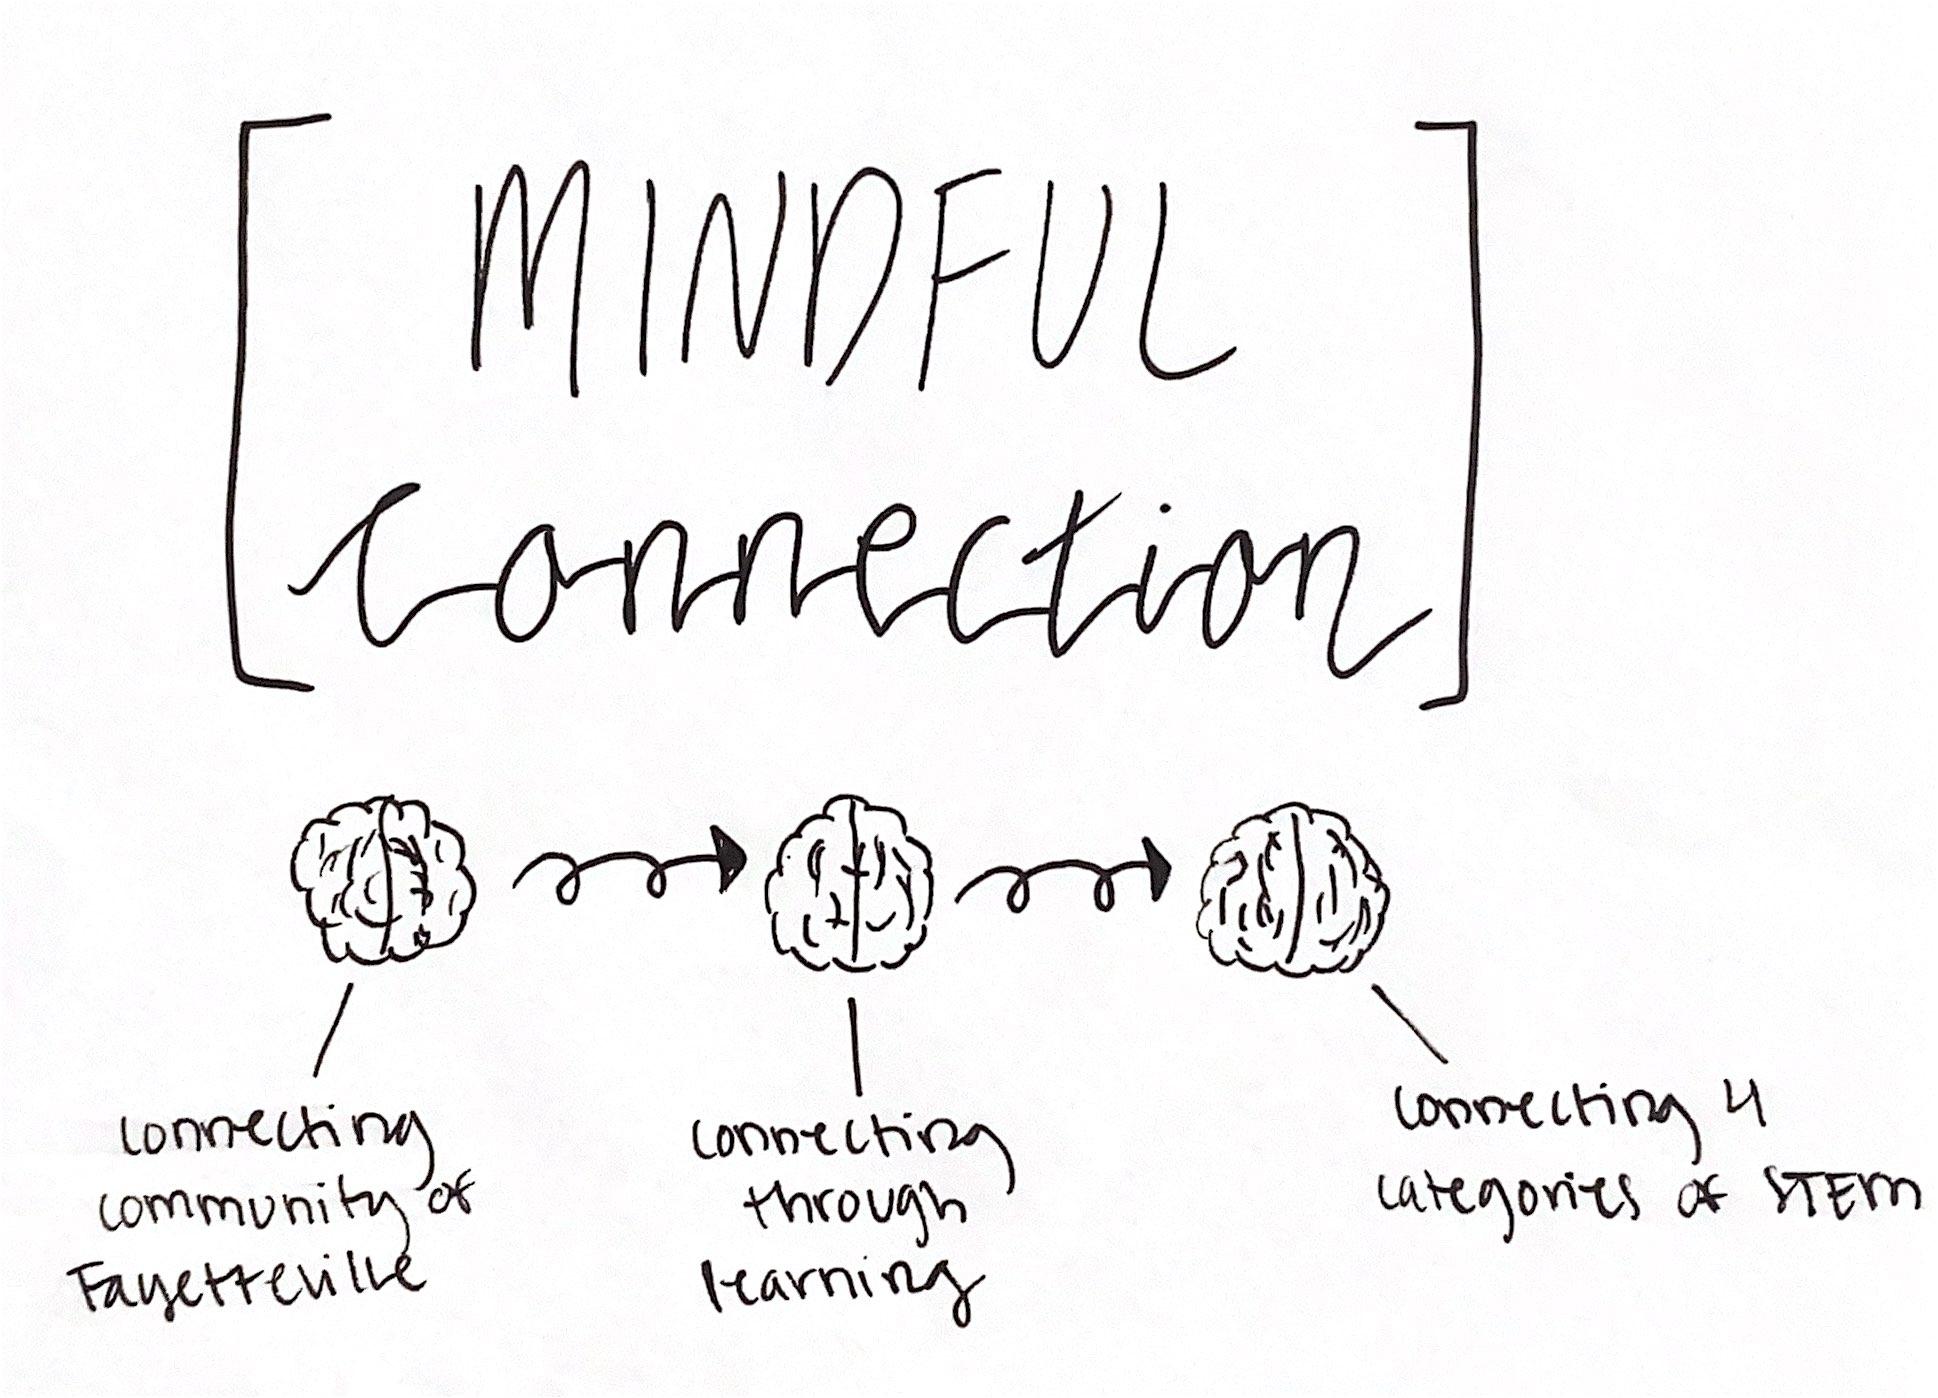 MINDFUL
connection
connecting
community of
Fayetteville
connecting
through
learning
connecting 4
categories of STEM